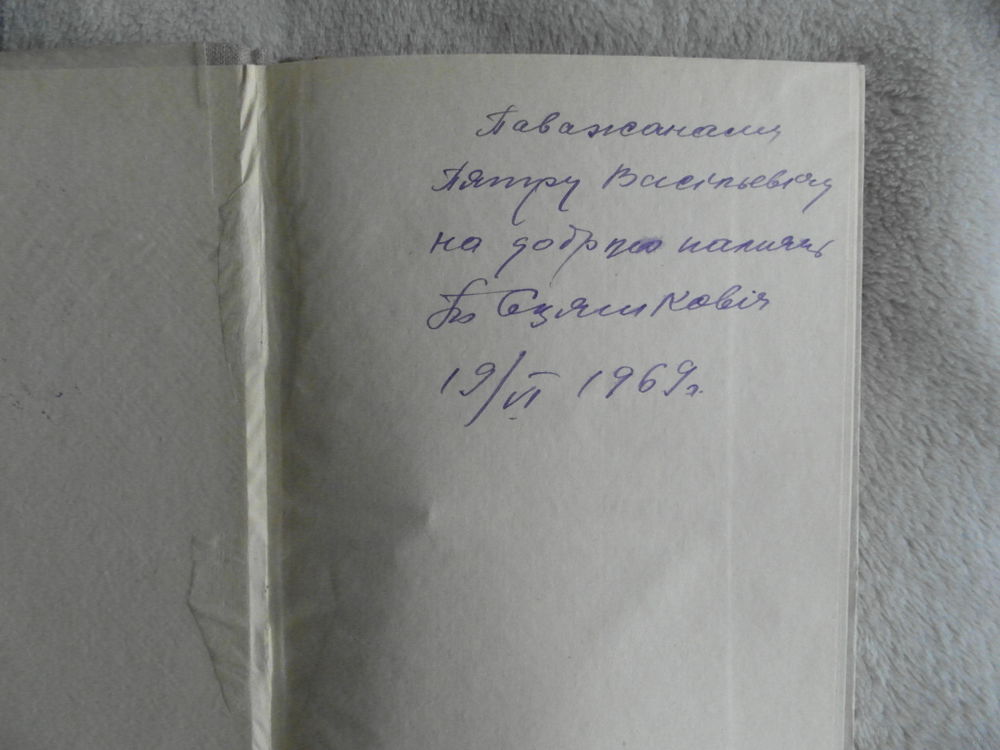 Паважанаму
Пятру Васільевічу
на добрую памяць
Сцяшковіч
19/VI 1969г.